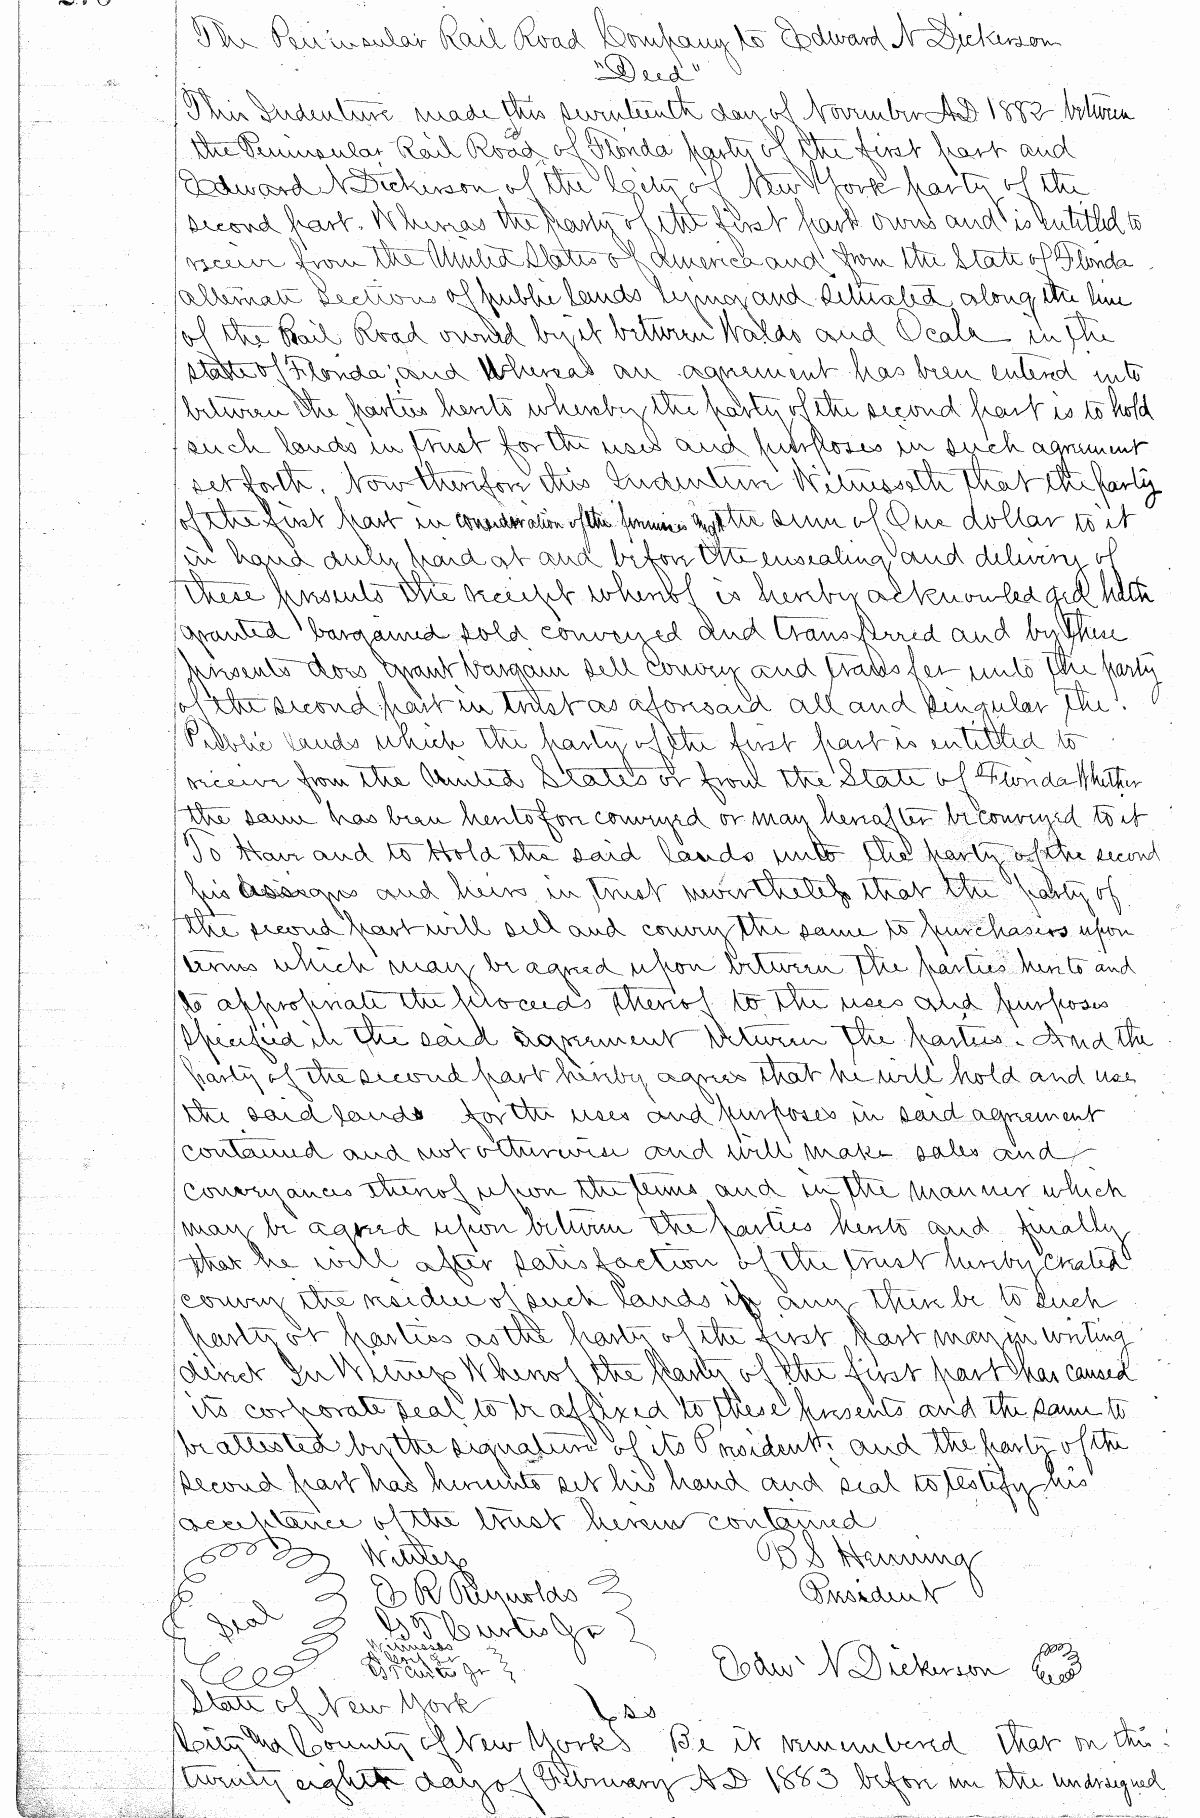 The Peninsular Rail Road Company to Edward N Dickerson
"Deed"
This Indenture made this seventeenth day of November AD 1882 between
the Peninsular Rail Road of Florida party of the first part and
Edward N Dickerson of the City of New York party of the
second part. Whereas the party of the first part owns and is entitled to
receive from the United States of America and from the State of Florida
alternate sections of public lands lying and situated along the line
of the Rail Road owned by it between Waldo and Ocala in the
state of Florida, and Whereas an agreement has been entered into
between the parties hereto whereby the party of the second part is to hold
such lands in trust for the uses and purposes in such agreement
set forth. Now therefore this Indenture Witnesseth that the party
of the first part in consideration of the premises and the sum of One dollar to it
in hand duly paid at and before the ensealing and delivery of
these presents the receipt whereof is hereby acknowledged hath
granted bargained sold conveyed and transferred and by these
presents does grant bargain sell convey and transfer unto the party
of the second part in trust as aforesaid all and singular the
Public lands which the party of the first part is entitled to
receive from the United States or from the State of Florida Whether
the same has been heretofore conveyed or may hereafter be conveyed to it
To Have and to Hold the said lands unto the party of the second
his assigns and heirs in trust nevertheless that the party of
the second part will sell and convey the same to purchasers upon
terms which may be agreed upon between the parties hereto and
to appropriate the proceeds thereof to the uses and purposes
specified in the said agreement between the parties. And the
party of the second part hereby agrees that he will hold and use
the said lands for the uses and purposes in said agreement
contained and not otherwise and will make sales and
conveyances thereof upon the terms and in the manner which
may be agreed upon between the parties hereto and finally
that he will after satisfaction of the trust hereby created
convey the residue of such lands if any there be to such
party or parties as the party of the first part may in writing
direct In Witness Whereof the party of the first part has caused
its corporate seal to be affixed to these presents and the same to
be attested by the signature of its President, and the party of the
second part has hereunto set his hand and seal to testify his
acceptance of the trust herein contained
Witness B S Henning
J R Reynolds President
Seal G T Curtis Jr
Witnesses
G T Curtis Jr Edwd N Dickerson
State of New York } ss
City and County of New York Be it remembered that on this
twenty eighth day of February AD 1883 before me the undersigned